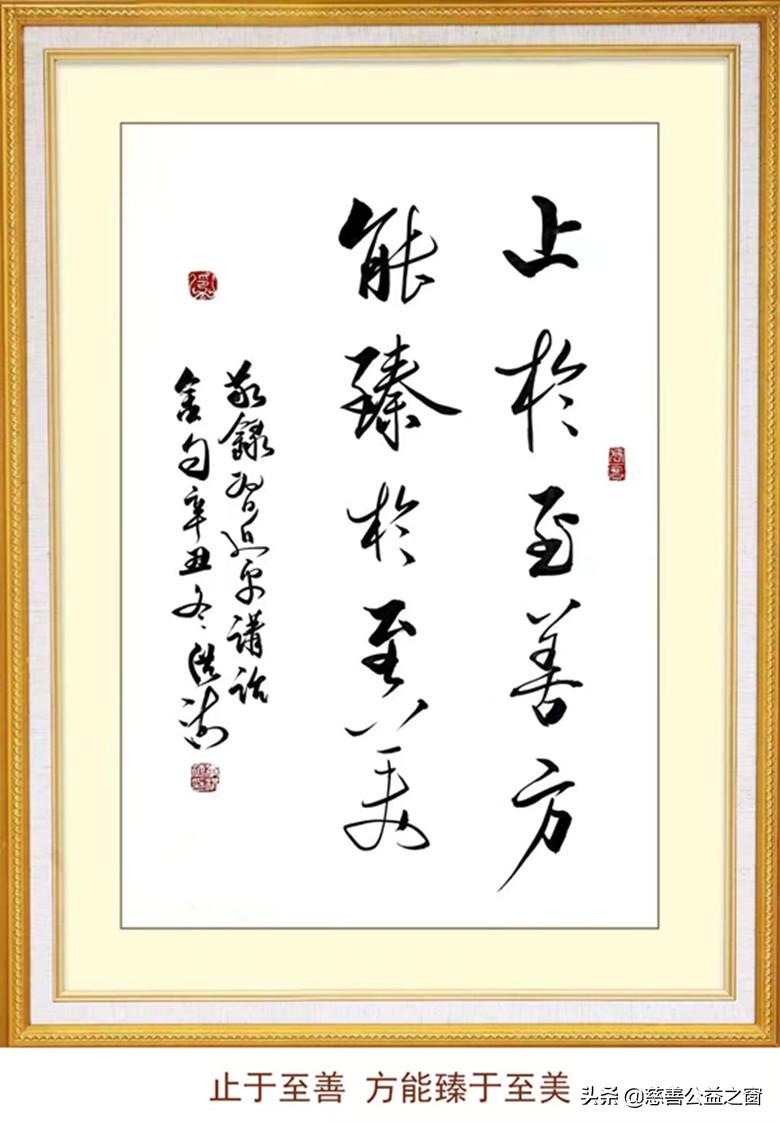 止於至善方
能臻於至美
敬錄習近平講話
金句辛丑冬洪
止于至善 方能臻于至美
头条 @慈善公益之窗